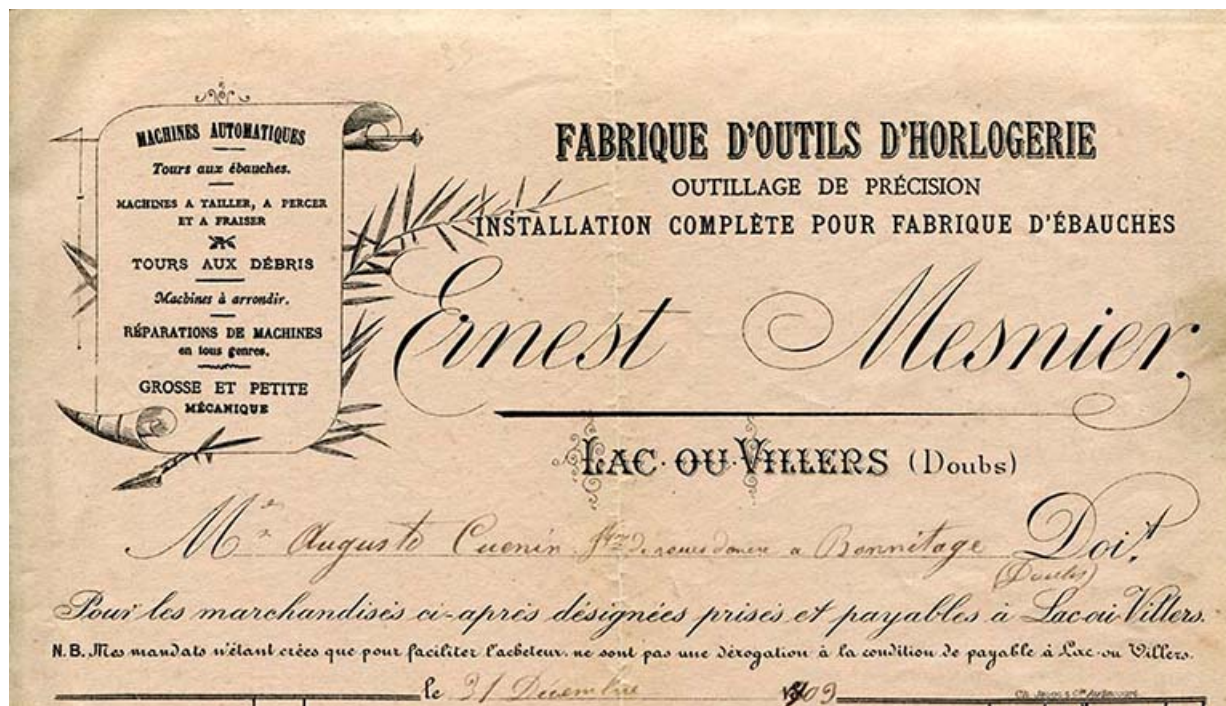 MACHINES AUTOMATIQUES
Tours aux ébauches.
MACHINES A TAILLER, A PERCER
ET A FRAISER
TOURS AUX DÉBRIS
Machines à arrondir.
RÉPARATIONS DE MACHINES
en tous genres.
GROSSE ET PETITE
MÉCANIQUE
FABRIQUE D'OUTILS D'HORLOGERIE
OUTILLAGE DE PRÉCISION
INSTALLATION COMPLÈTE POUR FABRIQUE D'ÉBAUCHES
Ernest Mesnier,
LAC·OU·VILLERS (Doubs)
Auguste Cuenin à Bonnétage Doit
(Doubs)
Pour les marchandises ci-après désignées prises et payables à Lac-ou-Villers.
N.B. Mes mandats n'étant créés que pour faciliter l'acheteur, ne sont pas une dérogation à la condition de payable à Lac-ou Villers.
le 31 Décembre 1903